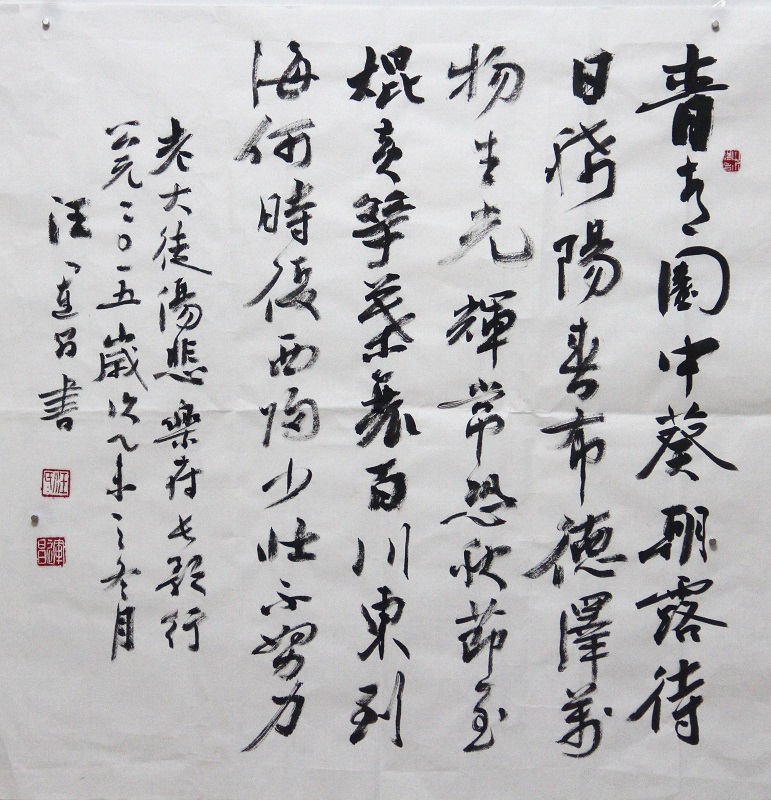 青青園中葵朝露待
日晞陽春布德澤萬
物生光輝常恐秋節至
焜黃華葉衰百川東到
海何時復西歸少壯不努力
老大徒傷悲樂府長歌行
公元二〇一五歲次乙未之冬月
汪運昌書
汪氏
運昌